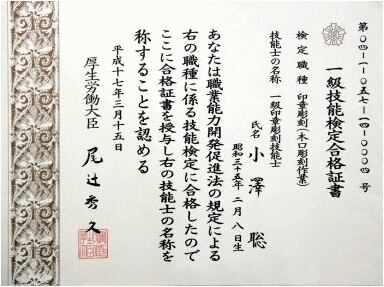 第〇四-一-〇五七-一四-〇〇〇四号
一級技能検定合格証書
検定職種 印章彫刻(木口彫刻作業)
技能士の名称 一級印章彫刻技能士
氏名 小澤 聡
昭和三十五年 二月 八日生
あなたは職業能力開発促進法の規定による
右の職種に係る技能検定に合格したので
ここに合格証書を授与し右の技能士の名称を
称することを認める
平成十七年三月十五日
厚生労働大臣 尾辻秀久